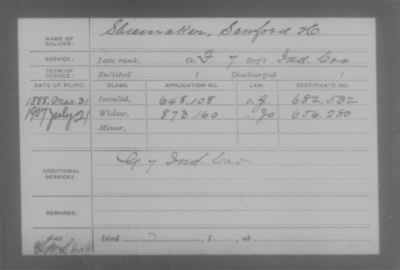 NAME OF SOLDIER: Shumaker, Samford H
SERVICE: Late rank, Co. F, 7 Reg't Ind. Cav
TERM OF SERVICE: Enlisted , 1 Discharged , 1
DATE OF FILING. CLASS. APPLICATION NO. LAW. CERTIFICATE NO.
1888. Mar. 31 Invalid, 648.108 682.532
1907 July 21 Widow, 873.160 656.280
Minor,
ADDITIONAL SERVICES: G. 7 Ind. Cav.
REMARKS:
Died , 1 , at